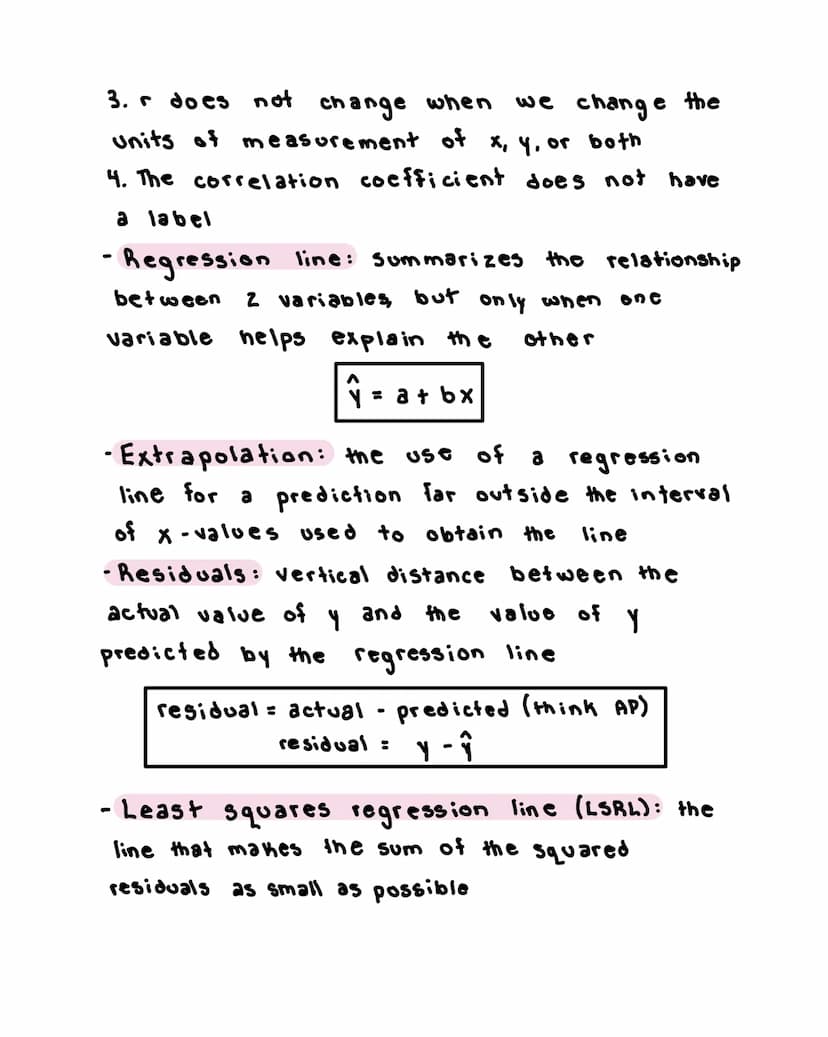 3. r does not change when we change the
units of measurement of x, y, or both
4. The correlation coefficient does not have
a label
- Regression line: summarizes the relationship
between 2 variables, but only when one
variable helps explain the other
ŷ = a + bx
- Extrapolation: the use of a regression
line for a prediction far outside the interval
of x-values used to obtain the line
- Residuals: vertical distance between the
actual value of y and the value of y
predicted by the regression line
residual = actual - predicted (think AP)
residual = y - ŷ
- Least squares regression line (LSRL): the
line that makes the sum of the squared
residuals as small as possible